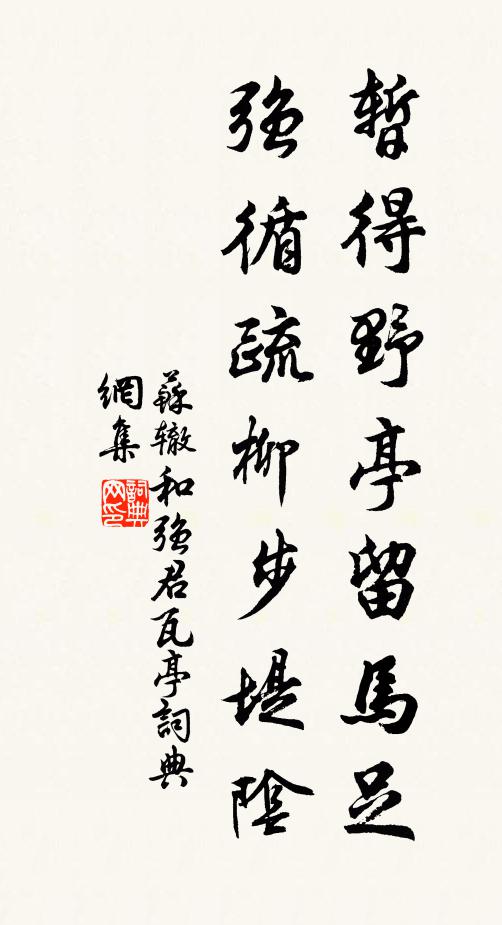 暫得野亭留馬足
強循疏柳步堤陰
蘇轍和強君瓦亭詞典
網集
詞典网印